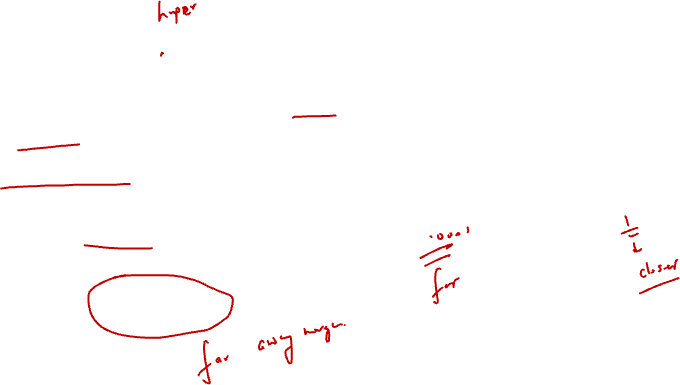 hyper
.0001
far
1
closer
far away margin.